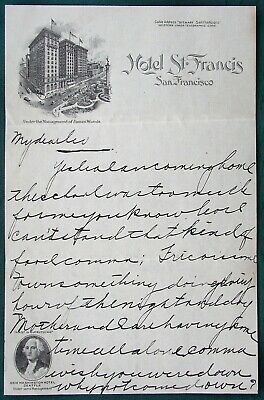 CABLE ADDRESS "STEWART, SANFRANCISCO"
WESTERN UNION TELEGRAPHIC CODE
Hotel St. Francis
San Francisco
Under the Management of James Woods.
My dear
Yes I am coming home
the school was too much
for me you know I
can't stand that kind of
food comma; Frisco is some
town something doing every
hour of the night and day
Mother and I are having some
time all alone comma
wish you were down
why not come down?
NEW WASHINGTON HOTEL
SEATTLE
Under same Management